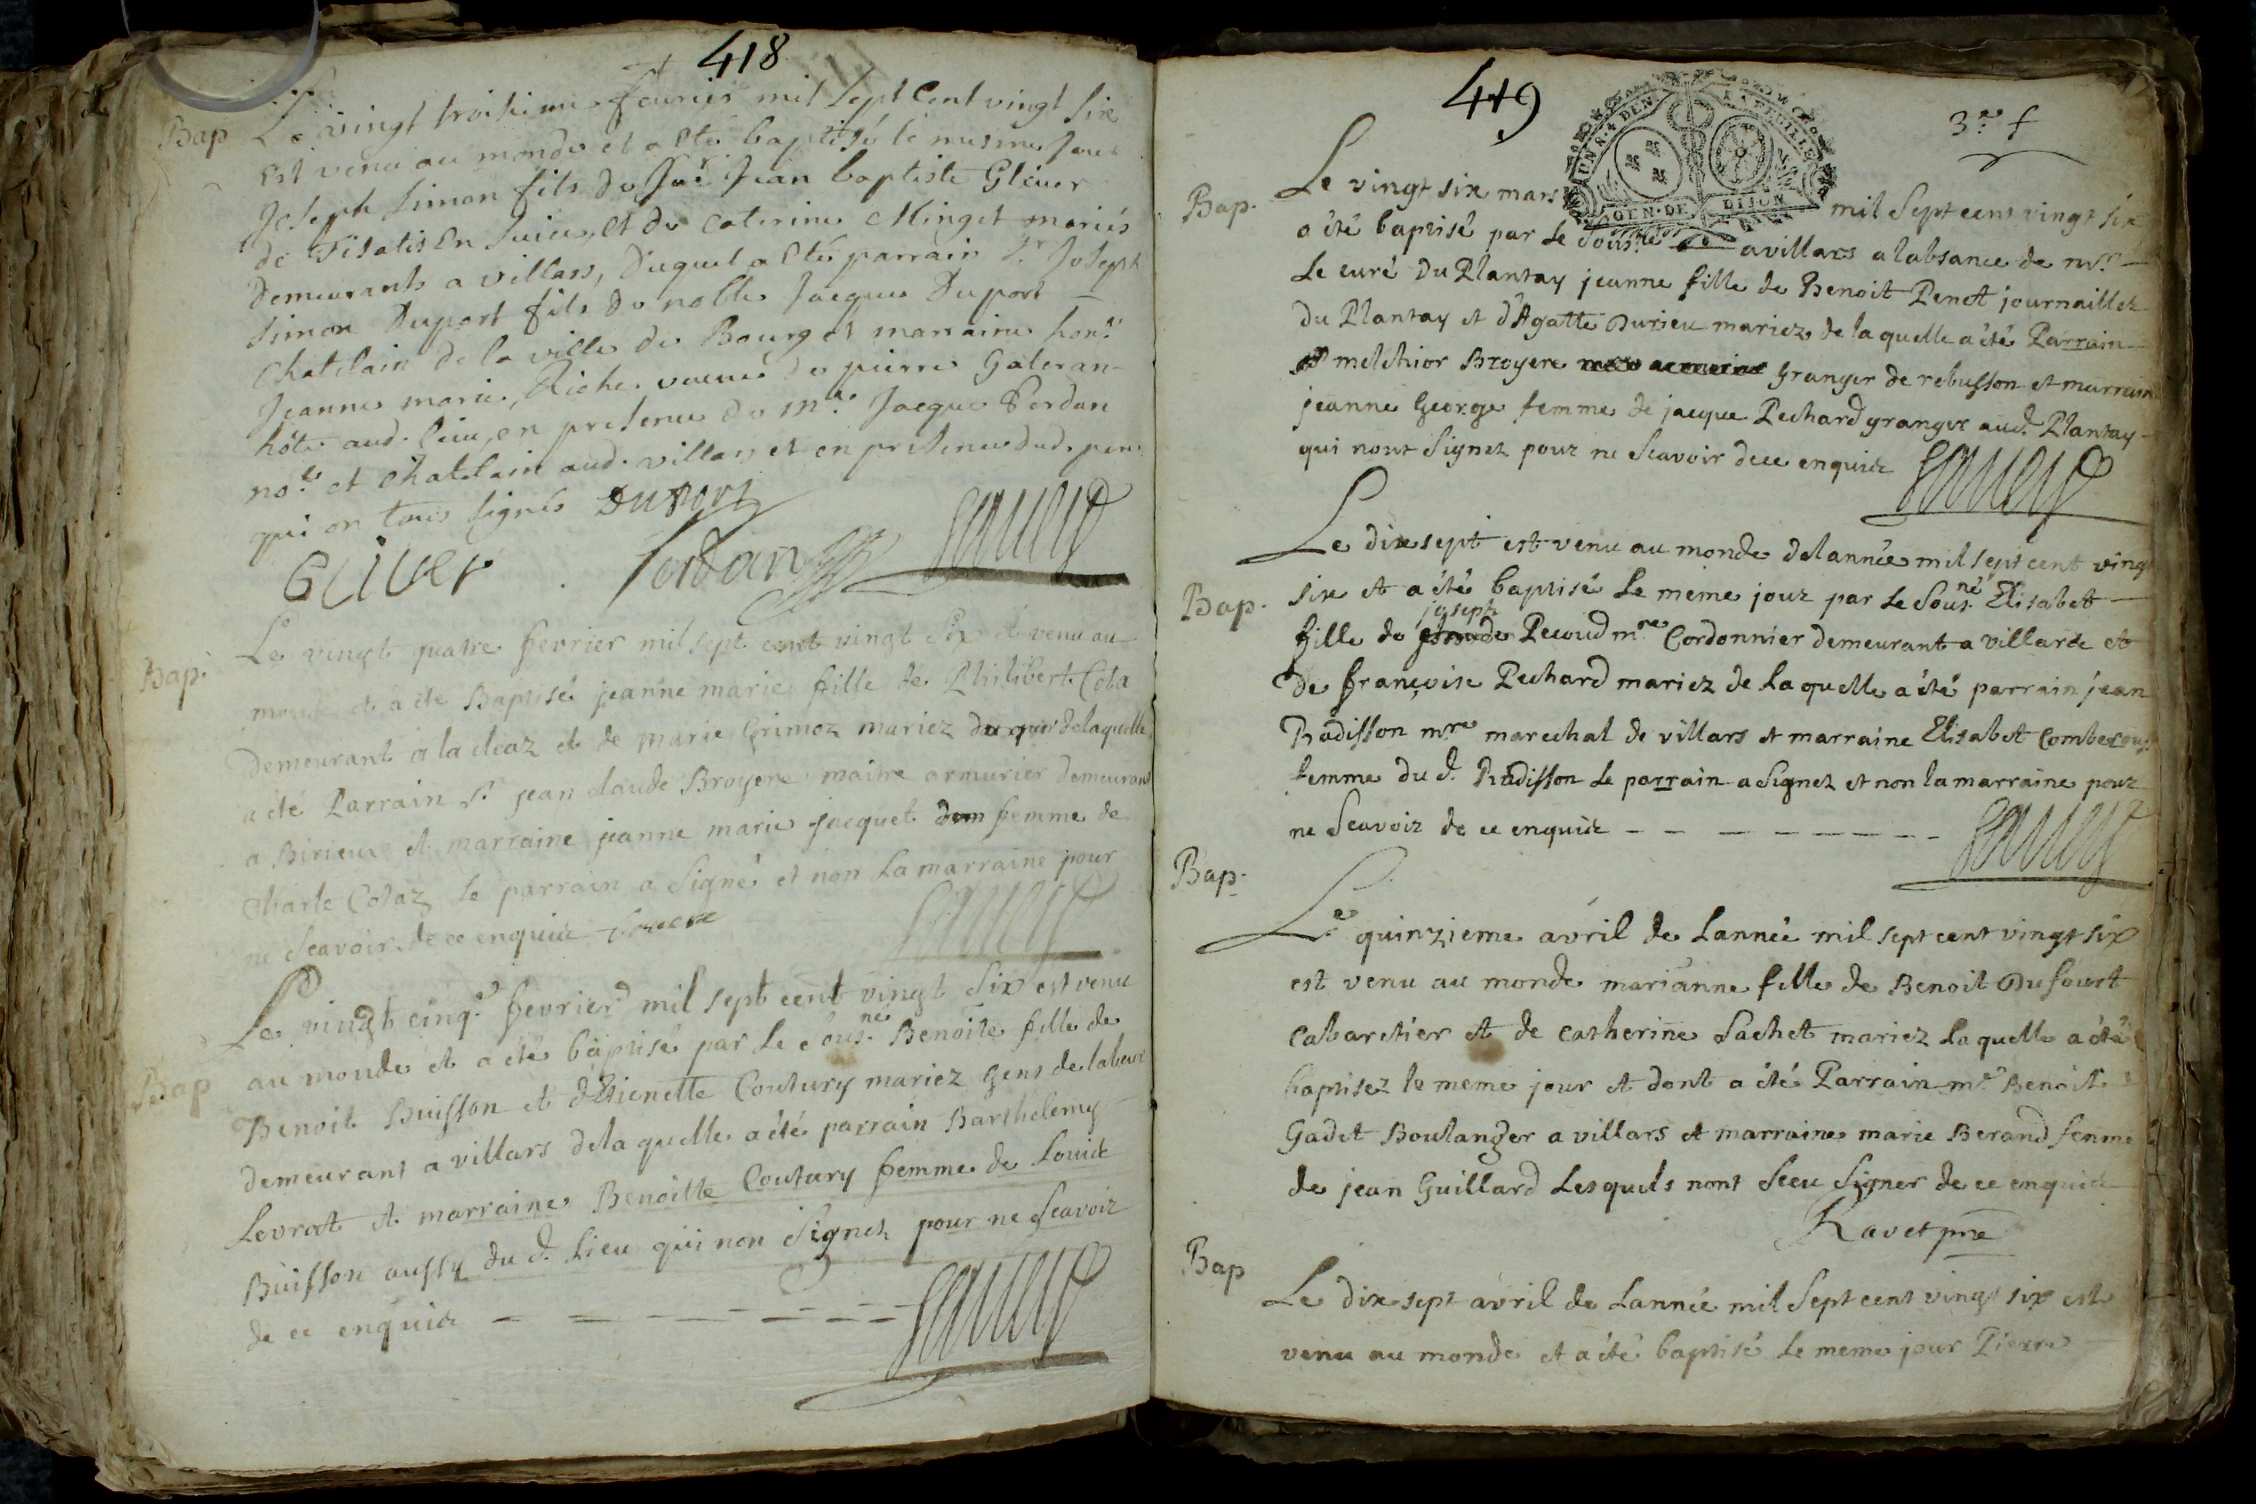 418
Bap
Le vingt troisieme feurier mil sept Cent vingt six
est venu au monde et a esté baptisé le mesme Jour
Joseph Simon fils de Jean baptiste Gliuer
de en Suice, et de Caterine Minget mariés
Demeurants a villars, Duquel a esté parrain Sr Joseph
Simon Duport fils de noble Jacque Duport
Chatelain de la ville de Bourg et marraine hon.
Jeanne marie Riche veuue de pierre Galeran
hôte aud. lieu, en presence de Me Jacque Jordan
no.re et Chatelain aud. villars et en presence dud. pere
qui on tous signés Duport
Gliuer Jordan
Bap.
Le vingt quatre fevrier mil sept cent vingt six est venu au
monde et a été Baptisé jeanne marie fille de Philibert Cota
demeurant a la cleaz et de marie Grimoz mariez delaquelle
a été Parrain Sr jean claude Broyere maitre armurier demeurant
a Birieux et marraine jeanne marie jacquet femme de
charle Cotaz le parrain a signé et non la marraine pour
ne Scavoir de ce enquise
Bap
Le vingt cinq.e fevrier mil sept cent vingt Six est venu
au monde et a été baptisé par Le Sous.né Benoite fille de
Benoit Buisson et d'Etienette Coutury mariez gens de labeur
demeurant a villars dela quelle a été parrain Barthelemy
Levrat et marraine Benoitte Coutury femme de Louis
Buisson aussy du d. Lieu qui non Signez pour ne Scavoir
de ce enquis - - - - - - - -
419
UN S. 4 DEN. LA FEUILLE
GEN. DE DIJON
3.e f
Bap.
Le vingt six mars mil Sept cent vingt six
a été baptisé par Le Sous.né a villars a labsance de mr.
Le curé Du Plantay jeanne fille de Benoit Penet journaillez
du Plantay et d'Agatte Durieu mariez de la quelle a été Parrain
melchior Broyere granger de rebusson et marraine
jeanne George femme de jacque Pechard granger aud. Plantay
qui nont Signez pour ne Scavoir de ce enquis
Bap.
Le dix sept est venu au monde delannée mil sept cent vingt
six et a été baptisé Le meme jour par Le Sous.né Elisabet
fille de joseph Pecoud m.re Cordonnier demeurant a villards et
De françoise Pechard mariez de Laquelle a été parrain jean
Radisson m.re marechal de villars et marraine Elisabet
femme du d. Radisson Le parrain a Signez et non la marraine pour
ne Scavoir de ce enquis - - - - - - - -
Bap.
Le quinzieme avril de Lannée mil sept cent vingt six
est venu au monde marianne fille de Benoit Dufourt
cabaretier et de catherine Sachet mariez Laquelle a été
baptisez le meme jour et dont a été Parrain m.e Benoit
Gadet Boulanger a villars et marraine marie Berand femme
de jean Guillard Lesquels nont Sceu Signer de ce enquis
Ravet pre
Bap
Le dix sept avril de Lannée mil Sept cent vingt six est
venu au monde et a été baptisé Le meme jour Pierre